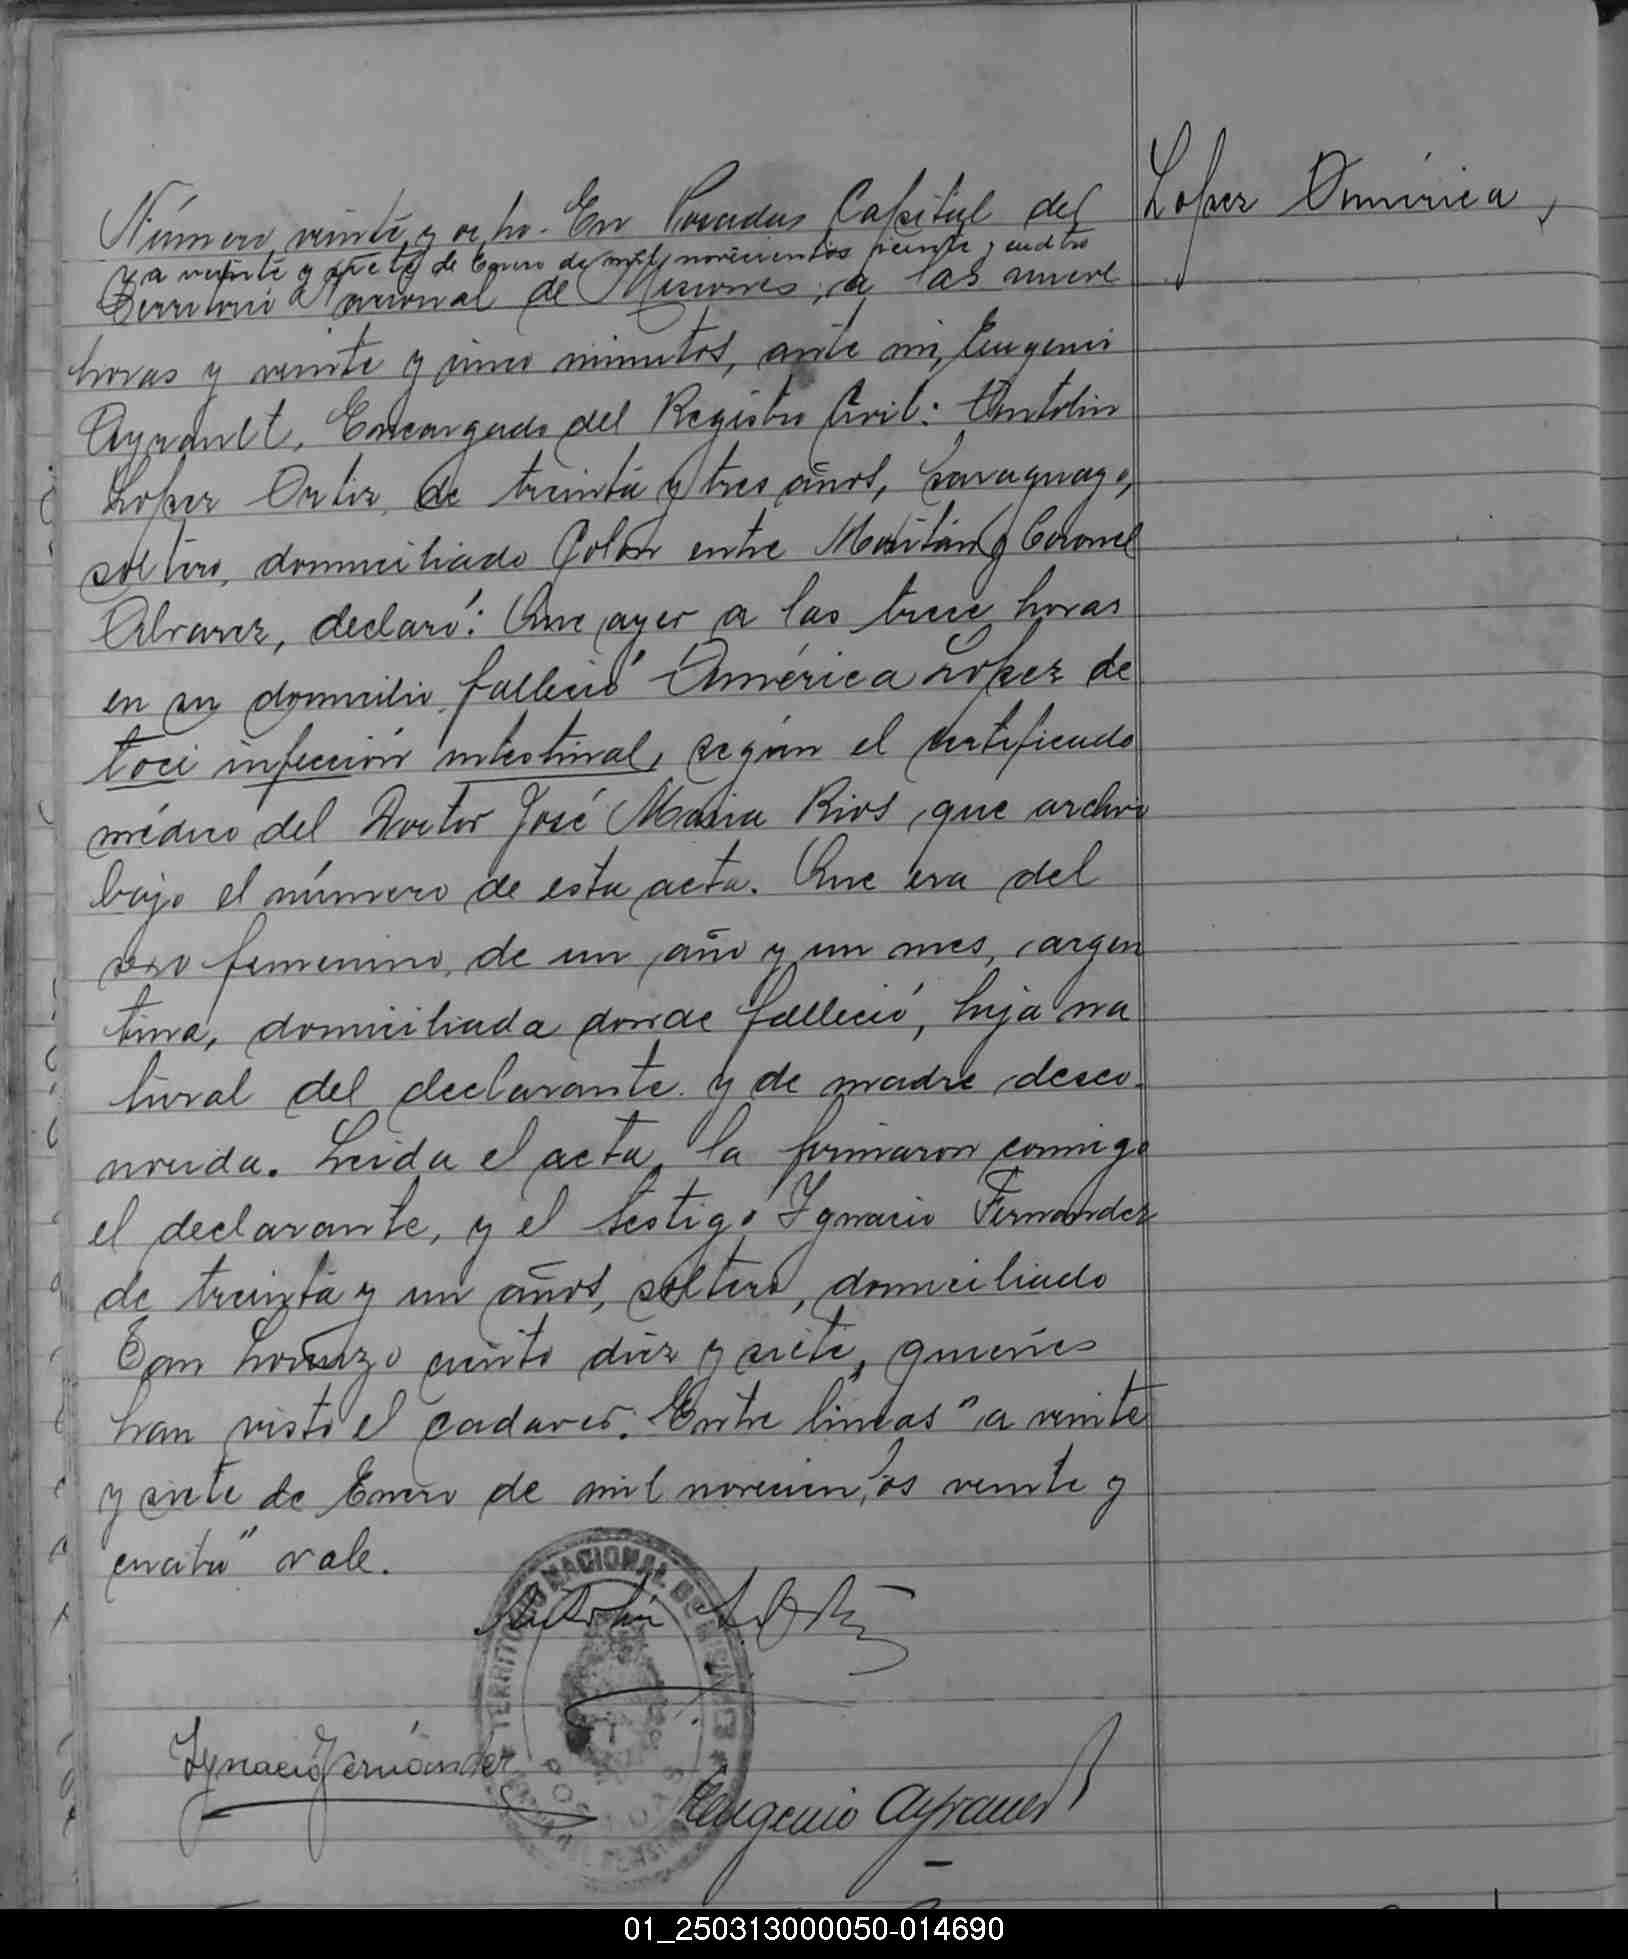 Lopez América
Número veinte y ocho. En Posadas Capital del
y a veinte y siete de Enero de mil novecientos veinte y cuatro
Territorio Nacional de Misiones, a las nueve
horas y veinte y cinco minutos, ante mi, Eugenio
Ayrault, Encargado del Registro Civil: Antolin
Lopez Ortiz, de treinta y tres años, paraguayo,
soltero, domiciliado Colón entre Maitán y Coronel
Alvarez, declaró: Que ayer a las trece horas
en su domicilio falleció América Lopez de
toci infección intestinal, según el certificado
médico del Doctor José Maria Rios, que archivo
bajo el número de esta acta. Que era del
sexo femenino, de un año y un mes, argen
tina, domiciliada donde falleció, hija na
tural del declarante y de madre desco-
nocida. Leida el acta, la firmaron conmigo
el declarante, y el testigo Ignacio Fernandez
de treinta y un años, soltero, domiciliado
San Lorenzo ciento diez y siete, quienes
han visto el cadaver. Entre lineas "a veinte
y siete de Enero de mil novecientos veinte y
cuatro" vale.
Antolin L. Ortiz
TERRITORIO NACIONAL DE MISIONES
POSADAS
Ignacio Fernández
Eugenio Ayrault
01_250313000050-014690